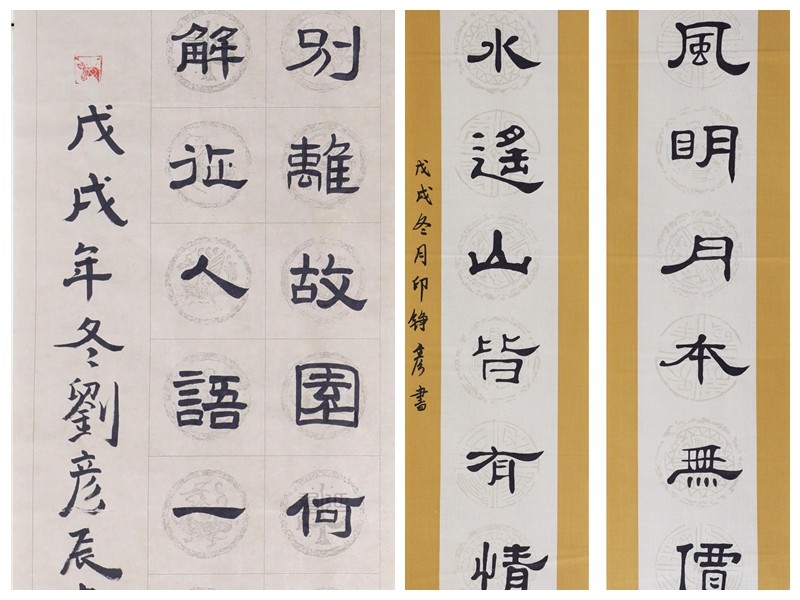 風明月本無價
水遙山皆有情
戊戌冬月印錚彥書
別離故園何
解征人語一
戊戌年冬劉彥辰